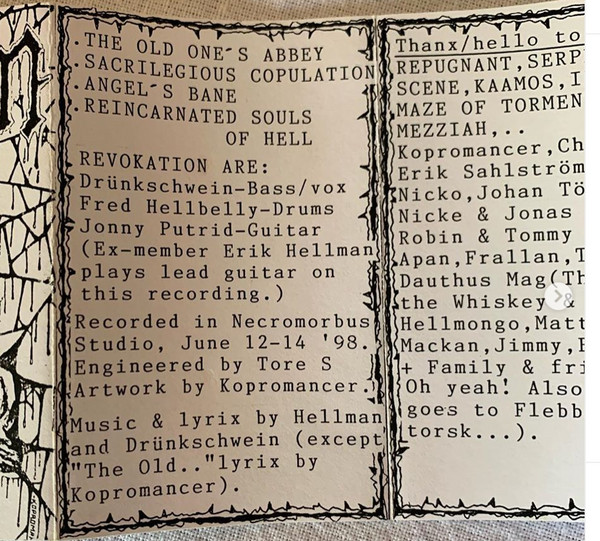 .THE OLD ONE´S ABBEY
.SACRILEGIOUS COPULATION
.ANGEL´S BANE
.REINCARNATED SOULS
OF HELL
REVOKATION ARE:
Drünkschwein-Bass/vox
Fred Hellbelly-Drums
Jonny Putrid-Guitar
(Ex-member Erik Hellman
plays lead guitar on
this recording.)
Recorded in Necromorbus
Studio, June 12-14 '98.
Engineered by Tore S
Artwork by Kopromancer.
Music & lyrix by Hellman
and Drünkschwein (except
"The Old.."lyrix by
Kopromancer).
Thanx/hello to
REPUGNANT,SERP
SCENE,KAAMOS,I
MAZE OF TORMEN
MEZZIAH,..
Kopromancer,Ch
Erik Sahlström
Nicko,Johan Tö
Nicke & Jonas
Robin & Tommy
Apan,Frallan,T
Dauthus Mag(Th
the Whiskey &
Hellmongo,Matt
Mackan,Jimmy,
+ Family & fri
Oh yeah! Also
goes to Flebb
torsk...).